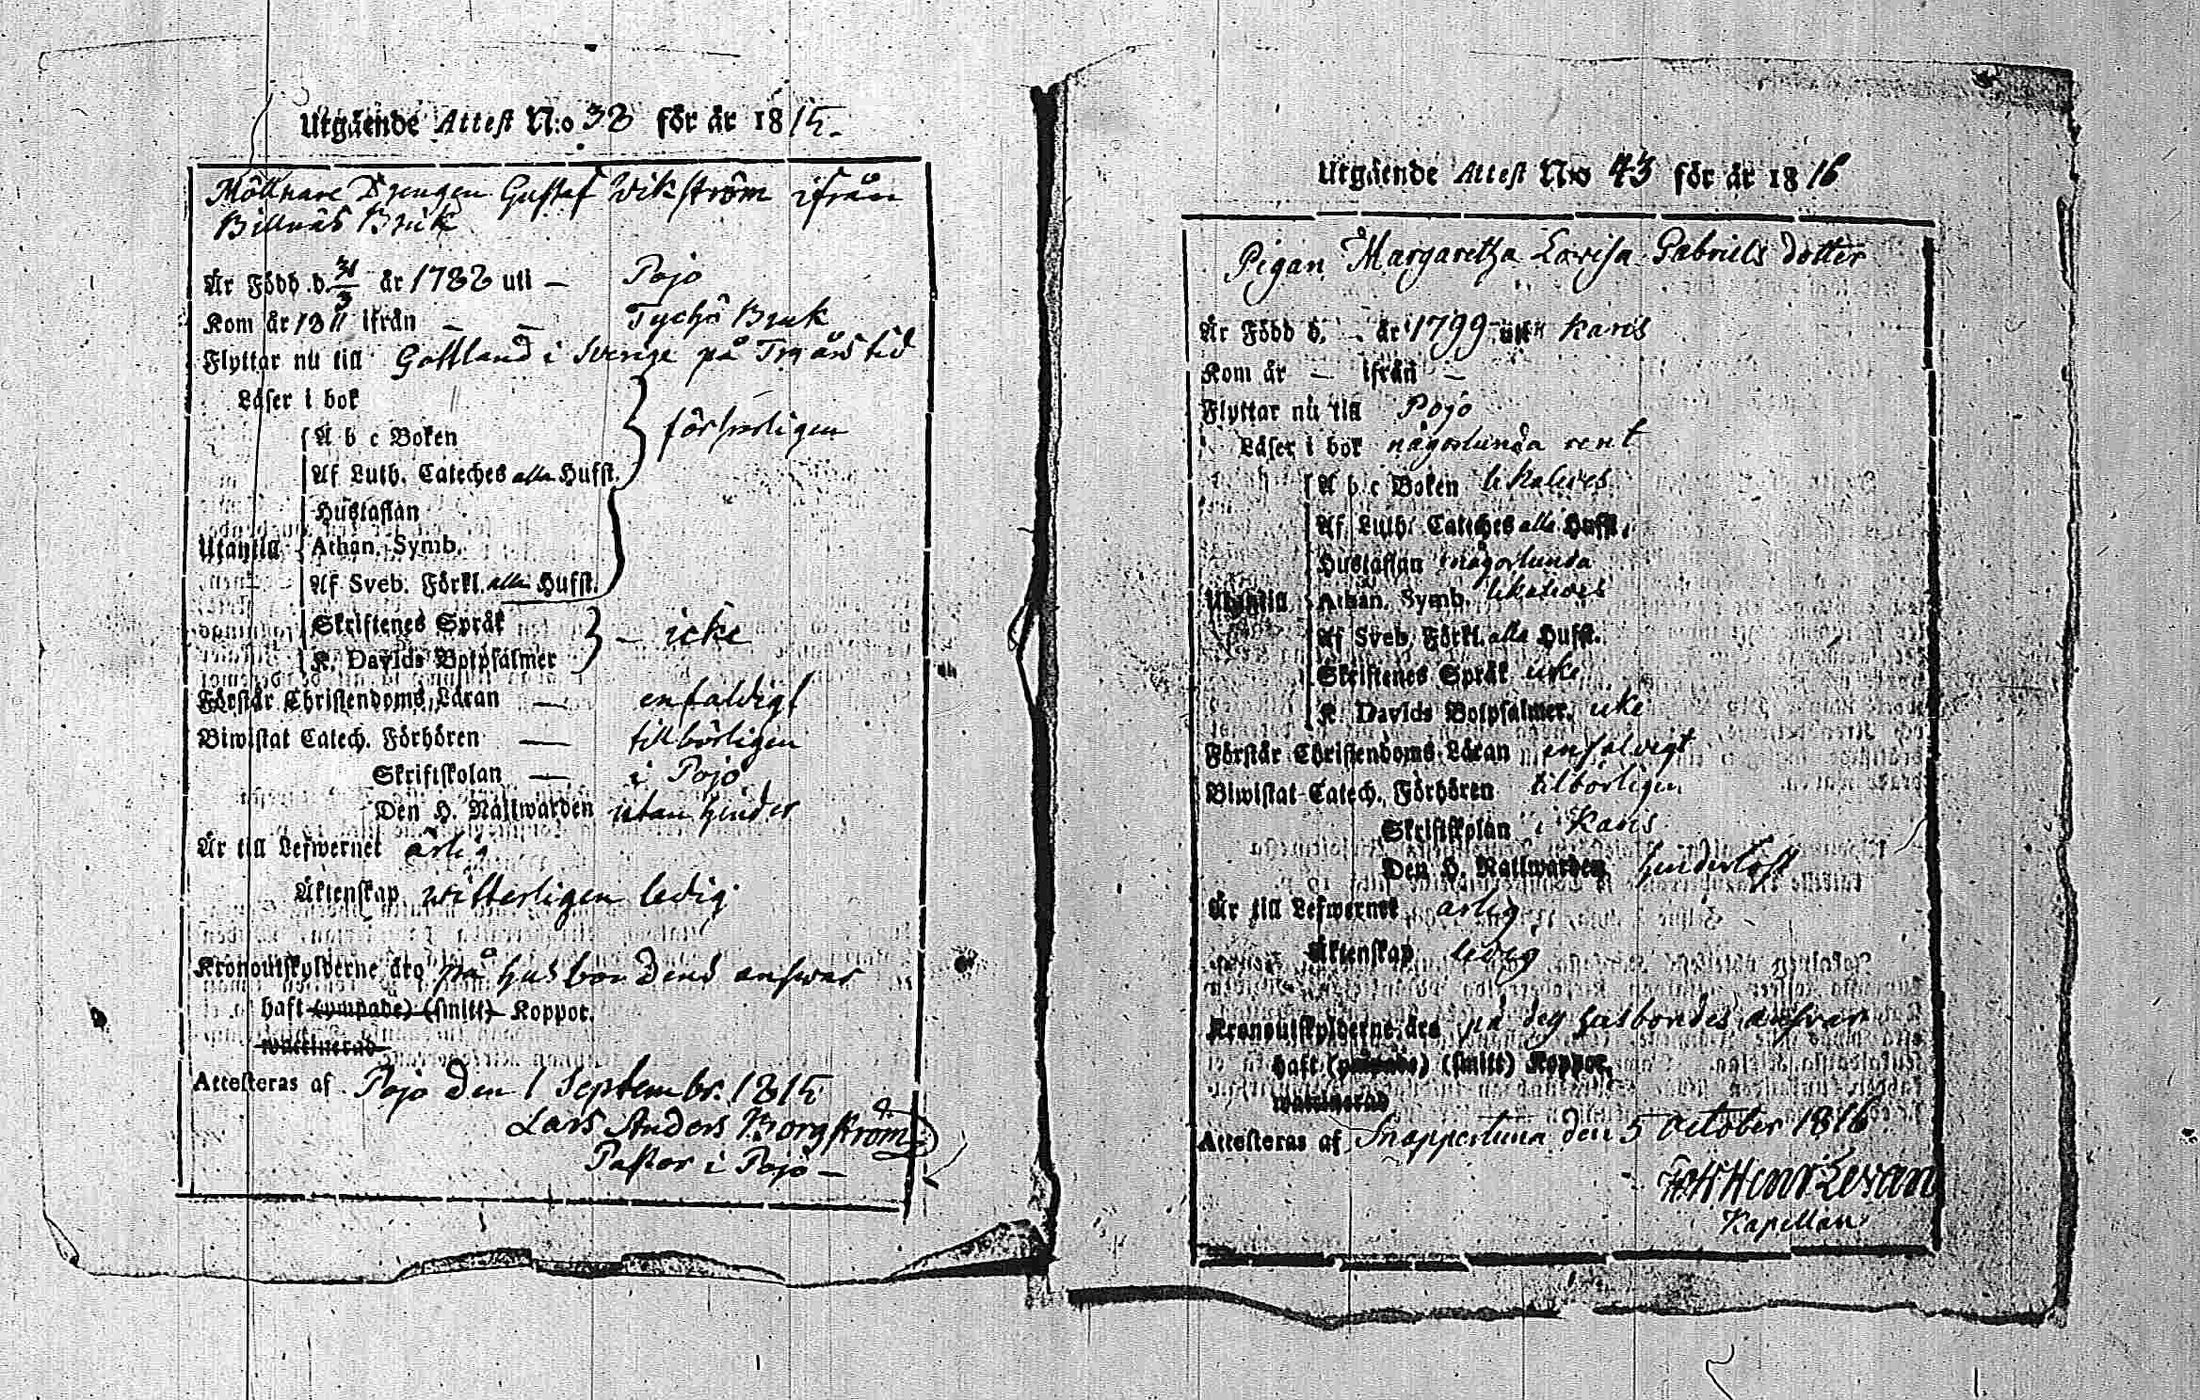 Utgående Attest N:o 38 för år 1815.
Möllnare Drengen Gustaf Wikström ifrån
Billnäs Bruk
Är Född d. 31/3 år 1788 uti — Pojo
Kom år 1811 ifrån — — Tyckö Bruk
Flyttar nu till Gottland i Sverige på Try års tid
Läser i bok
A b c Boken
Af Luth. Cateches alla Hufst. försvarligen
Hustaflan
Utantill Athan. Symb.
Af Sveb. Förkl. alla Hufst.
Skriftenes Språk
K. Davids Botpsalmer — icke
Förstår Christendoms Läran — enfaldigt
Biwistat Catech. Förhören — tillbörligen
Skriftskolan — i Pojo
Den H. Nattwarden utan hinder
Är till Lefwernet ärlig
Äktenskap witterligen ledig
Kronoutskylderne äro på husbondens answar
haft (ympade) (smitt) Koppor.
waccinerad
Attesteras af Pojo den 1 Septembr. 1815
Lars Anders Borgström
Pastor i Pojo —
Utgående Attest N:o 43 för år 1816
Pigan Margaretha Lovisa Gabriels dotter
Är Född d. - år 1799 uti Karis
Kom år — ifrån —
Flyttar nu till Pojo
Läser i bok någorlunda rent
A b c Boken likaledes
Af Luth. Cateches alla Hufst.
Hustaflan någorlunda
Utantill Athan. Symb. likaledes
Af Sveb. Förkl. alla Hufst.
Skriftenes Språk icke
K. Davids Botpsalmer. icke
Förstår Christendoms Läran enfaldigt
Biwistat Catech. Förhören tilbörligen
Skriftskolan i Karis
Den H. Nattwarden hinderlöst
Är till Lefwernet ärlig
Äktenskap ledig
Kronoutskylderne äro på dess husbondes answar
haft (ympade) (smitt) Koppor.
waccinerad
Attesteras af Snappertuna den 5 October 1816
Henr Levan
Kapellan